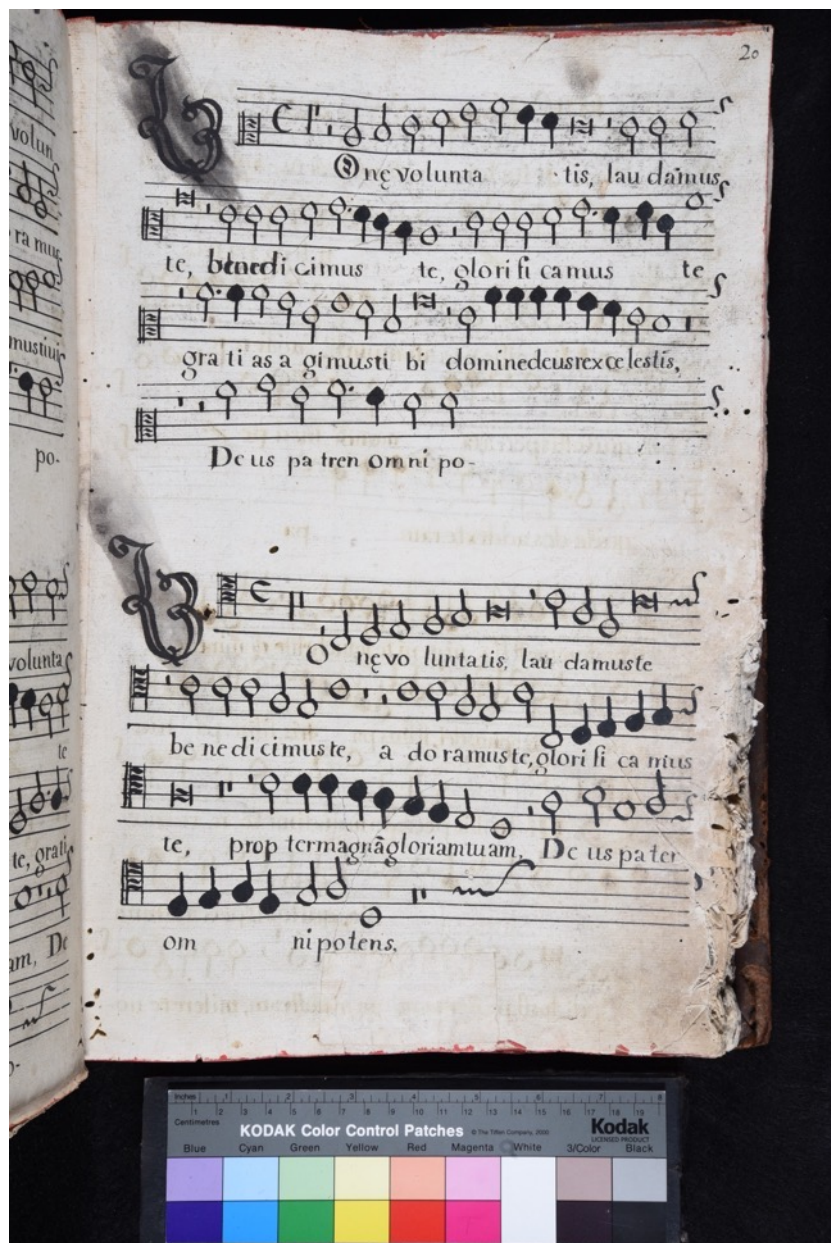 20
B
Onę volunta tis, lau damus
te, benedi cimus te, glori fi camus te
gra ti as a gimusti bi dominedeusrexcelestis,
De us pa tren omni po-
B
nę vo luntatis, lau damuste
be ne di cimus te, a do ramus te, glori fi ca mus
te, prop termagnãgloriamtuam, De us pa ter
om ni potens.
volun
ra mus
po-
volunta
te
te, grati
am, De
Inches
Centimetres
KODAK Color Control Patches © The Tiffen Company, 2000 Kodak
LICENSED PRODUCT
Blue Cyan Green Yellow Red Magenta White 3/Color Black